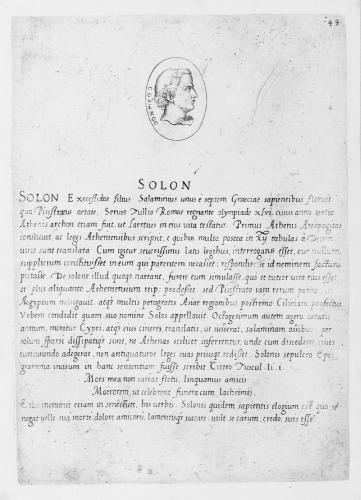 49
SOLON
SOLON Execestidae filius Salaminius unus e septem Graeciae sapientibus floruit
qua Pisistratus aetate, Servio Tullio Romae regnante olympiade xlvi. cuius anno tertio
Athenis archon etiam fuit, ut Laertius in eius vita testatur. Primus Athenis Areopagitas
constituit, ac leges Atheniensibus scripsit, e quibus multa postea in XII tabulas a Decem
viris sunt translata. Cum igitur severissimis latis legibus interrogatus esset, cur nullum
supplicium constituisset in eum qui parentem necasset, respondit, se id neminem facturum
putasse. De Solone illud quoque narrant, furere eum simulasse, quo et tutior vita eius esset
et plus aliquanto Atheniensium reip. prodesset sed Pisistrato iam rerum potito
Aegyptum navigavit, atque multis peragratis Asiae regionibus postremo Ciliciam profectus
Urbem condidit quam suo nomine Solos appellavit. Octogesimum autem agens aetatis
annum, moritur Cypri, atque eius cineres, translatis, ut iusserat, Salaminam ossibus, per
solum sparsi dissipatique sunt, ne Athenas scilicet inferrentur, unde cum discedens, cives
iureiurando adegerat, non antiquaturos leges suas priusquam redisset. Solonis sepulcro Epi
gramma incisum in hanc sententiam fuisse scribit Cicero Tuscul. li. i.
Mors mea non careat fletu, linquamus amicis
Moerorem, ut celebrent funera cum lachrimis.
Eius meminit etiam in senectute, his verbis. Solonis quidem sapientis elogium est, quo se
negat velle sua morte dolore amicorum, lamentisque vacare. vult se carum, credo, suis esse